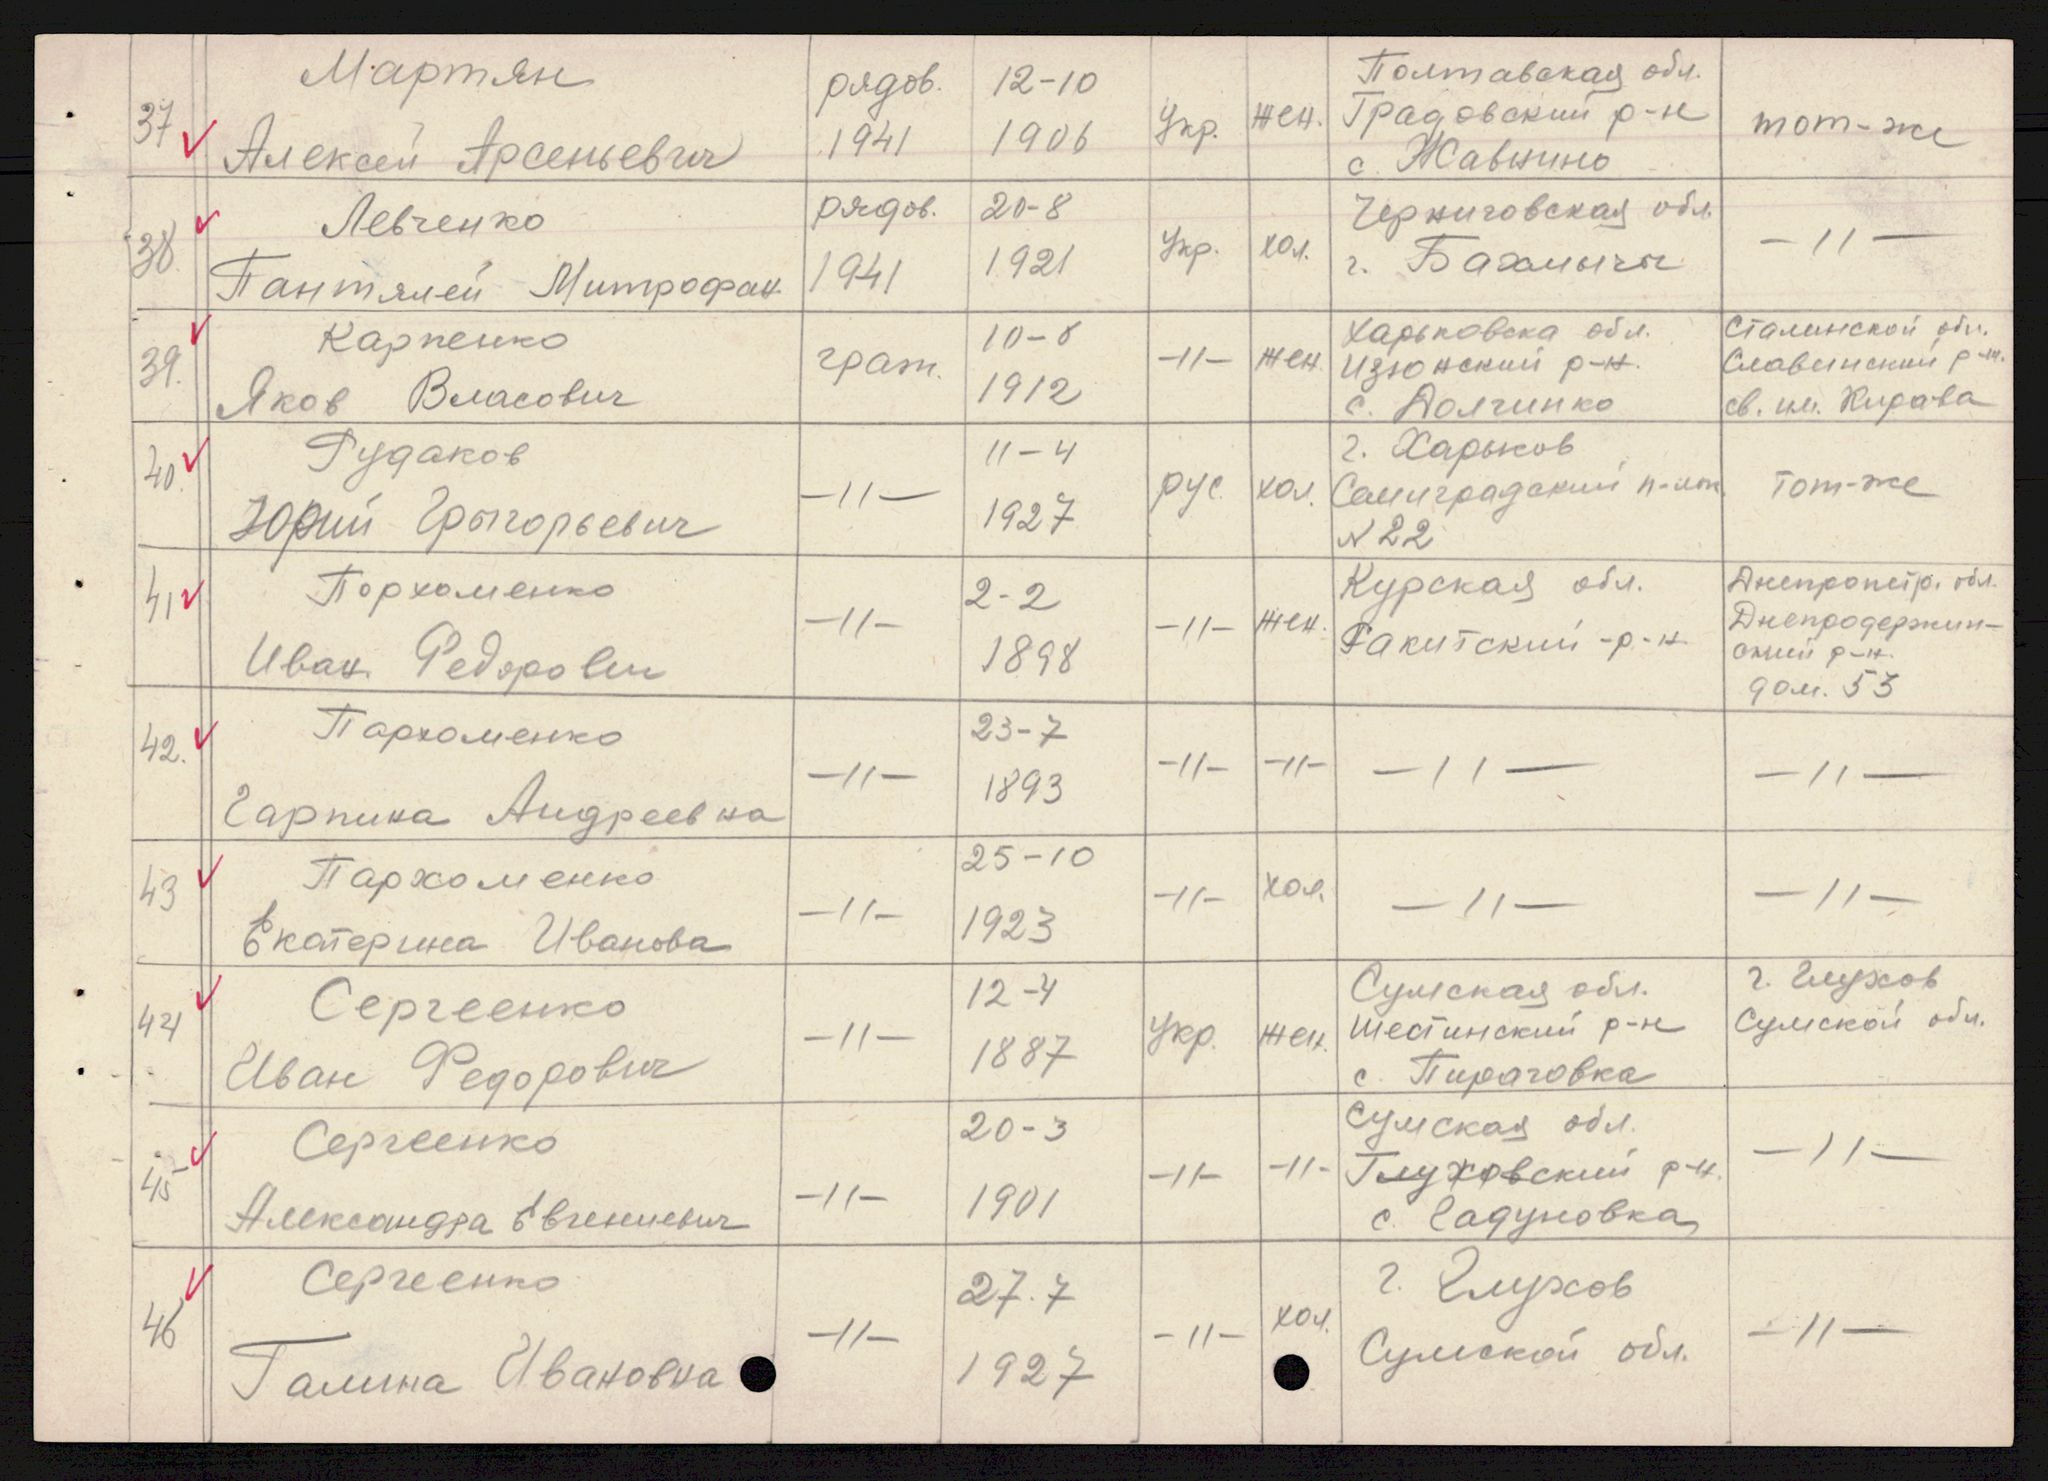 37 Мартян рядов. 12-10 Укр. жен. Полтавская обл. тот-же
Алексей Арсеньевич 1941 1906 Градовский р-н
с. Жавнино
38. Левченко рядов. 20-8 Укр. хол. Черниговская обл. -11-
Пантялей Митрофан 1941 1921 г. Бахмычи
39. Карпенко граж. 10-8 -11- жен. Харьковска обл. Сталинской обл.
Яков Власович 1912 Изюнский р-н. Славинский р-н.
с. Долгинко св. им. Кирава
40. Рудаков -11- 11-4 рус. хол. г. Харьков тот-же
Юрий Григорьевич 1927 Семиградский
N 22
41 Порхоменко -11- 2-2 -11- жен. Курская обл. Днепропетр. обл.
Иван Федорович 1898 Ракитский р-н Днепродержин-
ский р-н.
дом. 53
42. Пархоменко -11- 23-7 -11- -11- -11- -11-
Гарпина Андреевна 1893
43 Пархоменко -11- 25-10 -11- хол. -11- -11-
Екатерина Иванова 1923
44 Сергеенко -11- 12-4 Укр. жен. Сумская обл. г. Глухов
Иван Федорович 1887 Шестинский р-н Сумской обл.
с. Пираговка
45 Сергеенко -11- 20-3 -11- -11- Сумская обл. -11-
Александра Евгениевич 1901 Глуховский р-н.
с. Гадуновка
46 Сергеенко -11- 27.7 -11- хол. г. Глухов -11-
Галина Ивановна 1927 Сумской обл.